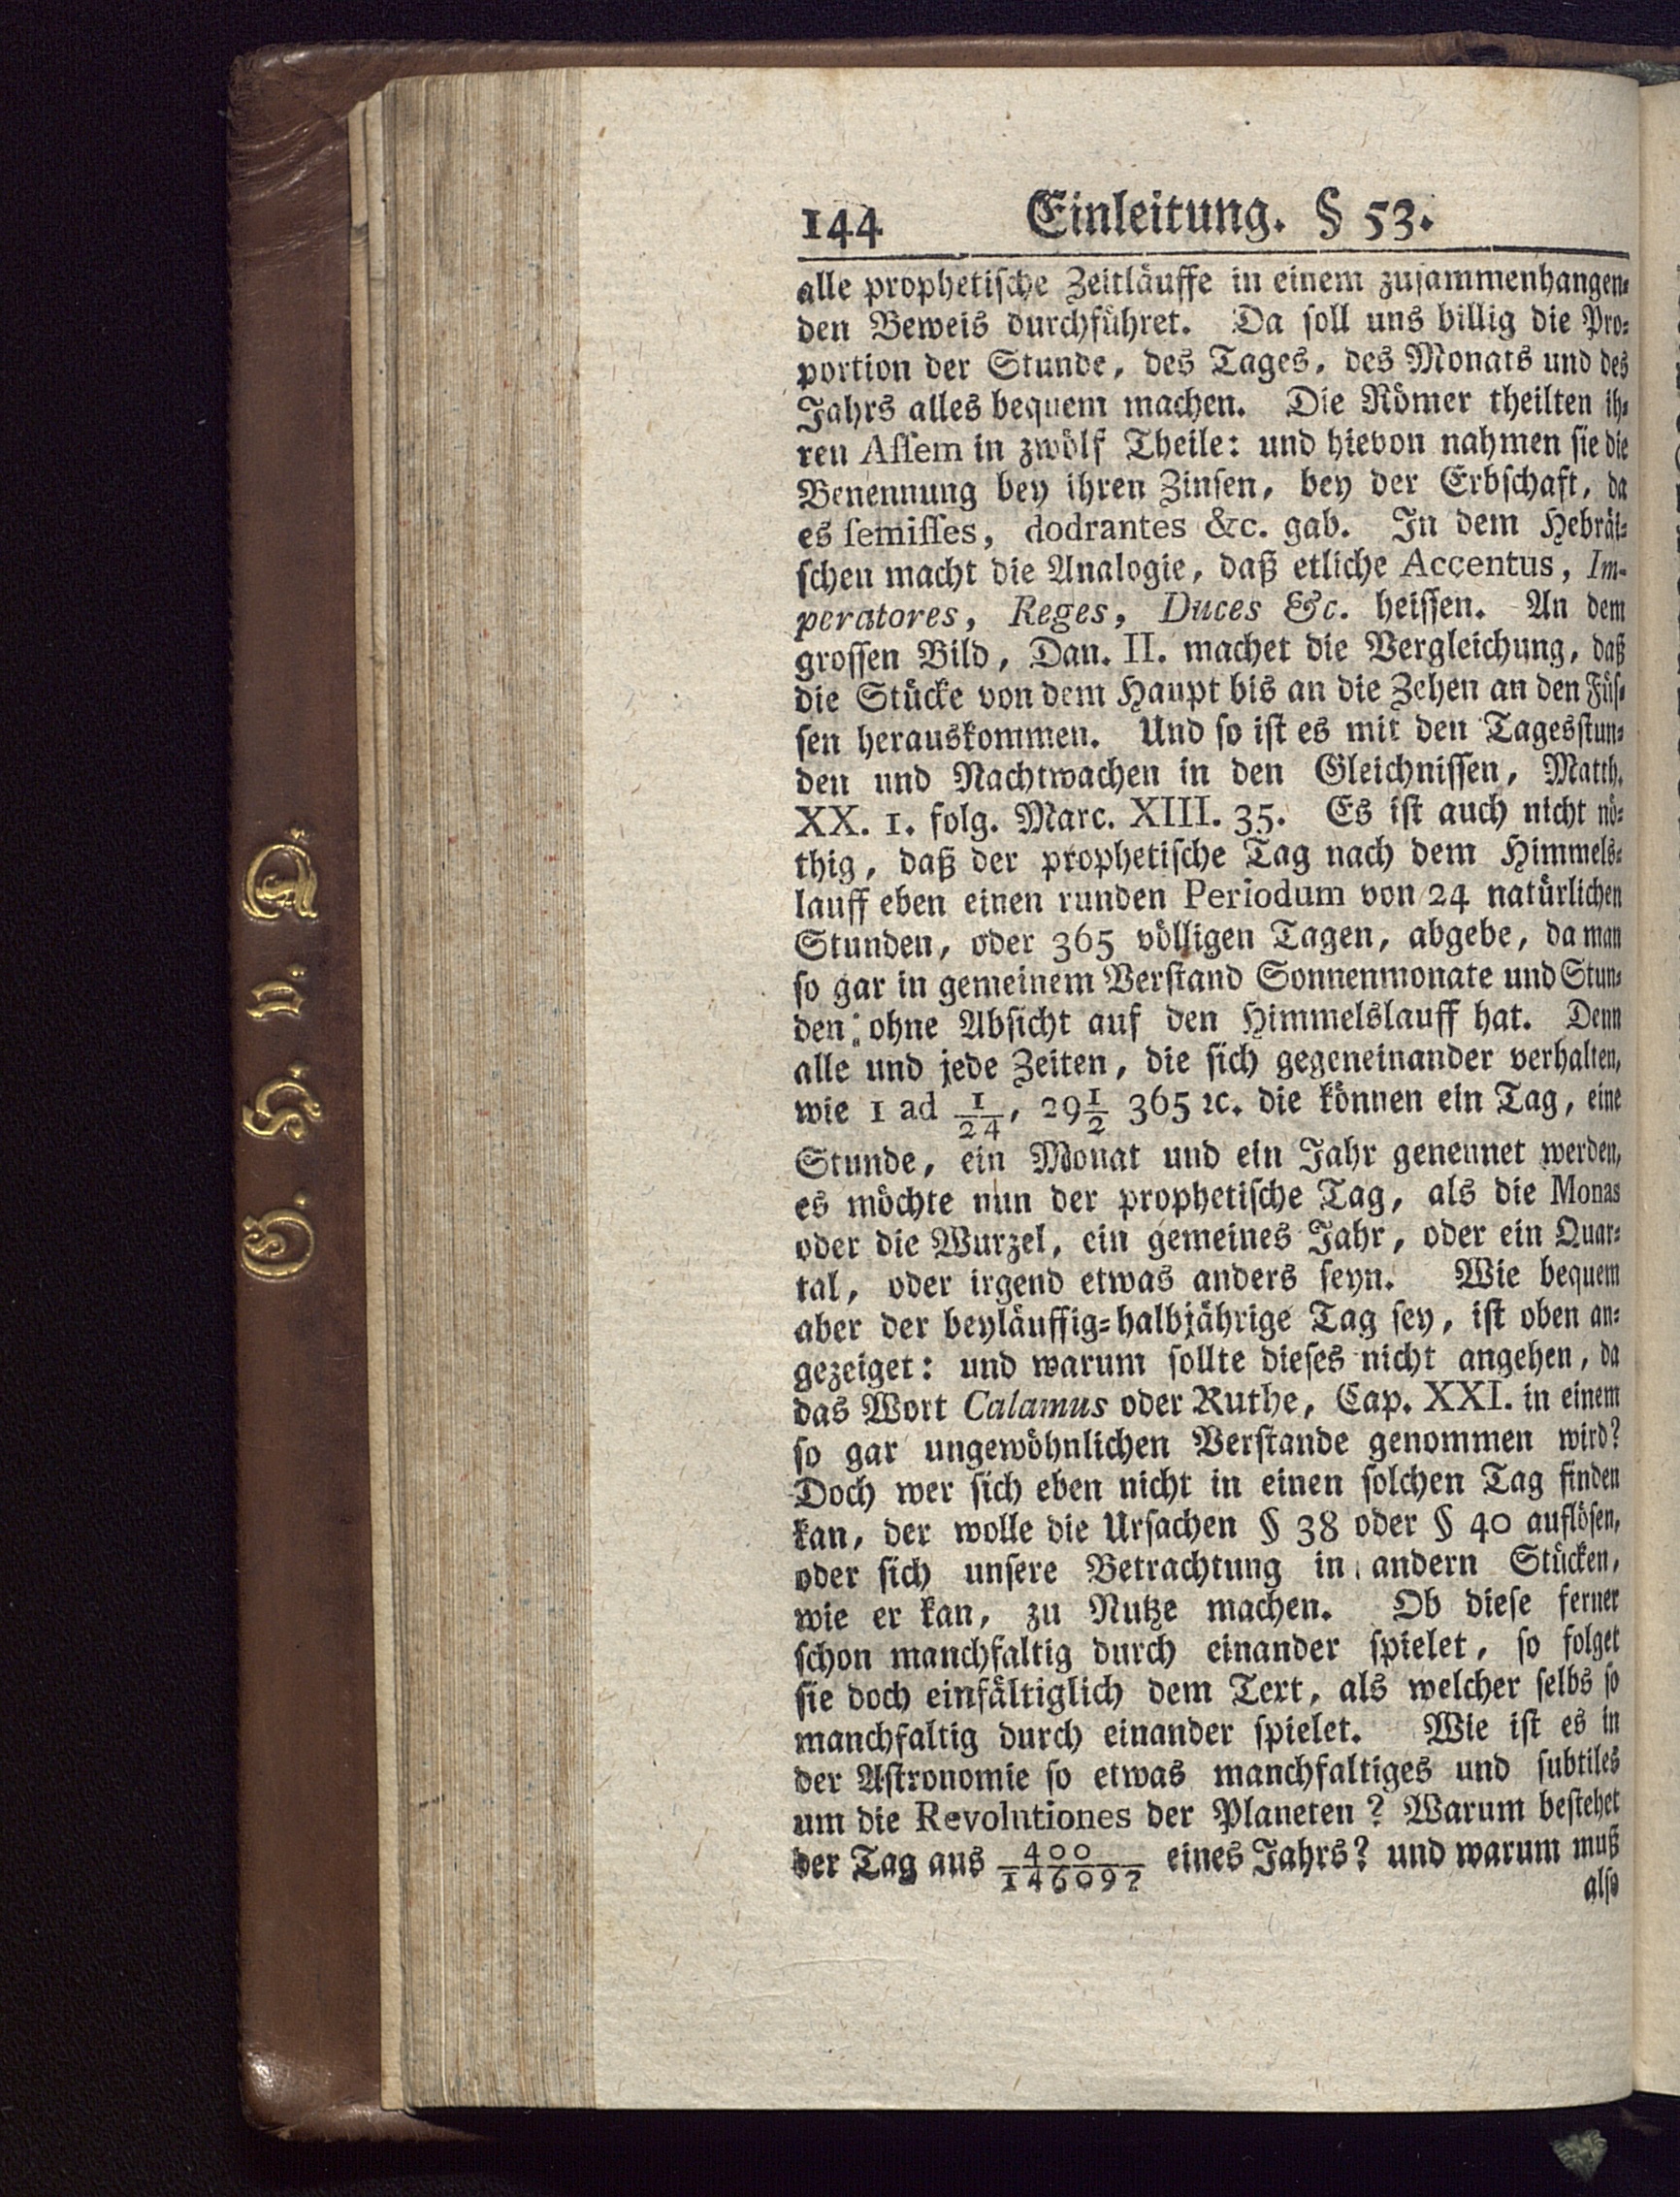 144 Einleitung. § 53.
alle prophetische Zeitläuffe in einem zusammenhangen⸗
den Beweis durchführet. Da soll uns billig die Pro⸗
portion der Stunde, des Tages, des Monats und des
Jahrs alles bequem machen. Die Römer theilten ih⸗
ren Assem in zwölf Theile: und hievon nahmen sie die
Benennung bey ihren Zinsen, bey der Erbschaft, da
es semisses, dodrantes &c. gab. In dem Hebräi⸗
schen macht die Analogie, daß etliche Accentus, Im-
peratores, Reges, Duces &c. heissen. An dem
grossen Bild, Dan. II. machet die Vergleichung, daß
die Stücke von dem Haupt bis an die Zehen an den Füs⸗
sen herauskommen. Und so ist es mit den Tagesstun⸗
den und Nachtwachen in den Gleichnissen, Matth.
XX. 1. folg. Marc. XIII. 35. Es ist auch nicht nö⸗
thig, daß der prophetische Tag nach dem Himmels⸗
lauff eben einen runden Periodum von 24 natürlichen
Stunden, oder 365 völligen Tagen, abgebe, da man
so gar in gemeinem Verstand Sonnenmonate und Stun⸗
den ohne Absicht auf den Himmelslauff hat. Denn
alle und jede Zeiten, die sich gegeneinander verhalten,
wie 1 ad 1/24, 29 1/2 365 ꝛc. die können ein Tag, eine
Stunde, ein Monat und ein Jahr genennet werden,
es möchte nun der prophetische Tag, als die Monas
oder die Wurzel, ein gemeines Jahr, oder ein Quar⸗
tal, oder irgend etwas anders seyn. Wie bequem
aber der beyläuffig⸗halbjährige Tag sey, ist oben an⸗
gezeiget: und warum sollte dieses nicht angehen, da
das Wort Calamus oder Ruthe, Cap. XXI. in einem
so gar ungewöhnlichen Verstande genommen wird?
Doch wer sich eben nicht in einen solchen Tag finden
kan, der wolle die Ursachen § 38 oder § 40 auflösen,
oder sich unsere Betrachtung in andern Stücken,
wie er kan, zu Nutze machen. Ob diese ferner
schon manchfaltig durch einander spielet, so folget
sie doch einfältiglich dem Text, als welcher selbs so
manchfaltig durch einander spielet. Wie ist es in
der Astronomie so etwas manchfaltiges und subtiles
um die Revolutiones der Planeten? Warum bestehet
der Tag aus 400/146097 eines Jahrs? und warum muß
also
G. H. v. A.